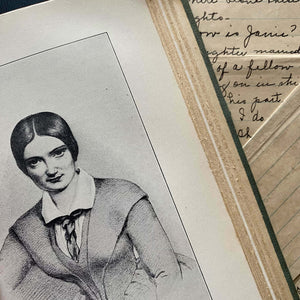 ghts.
ow is Janie?
ughter married
of a fellow
g on in the
his part
I do